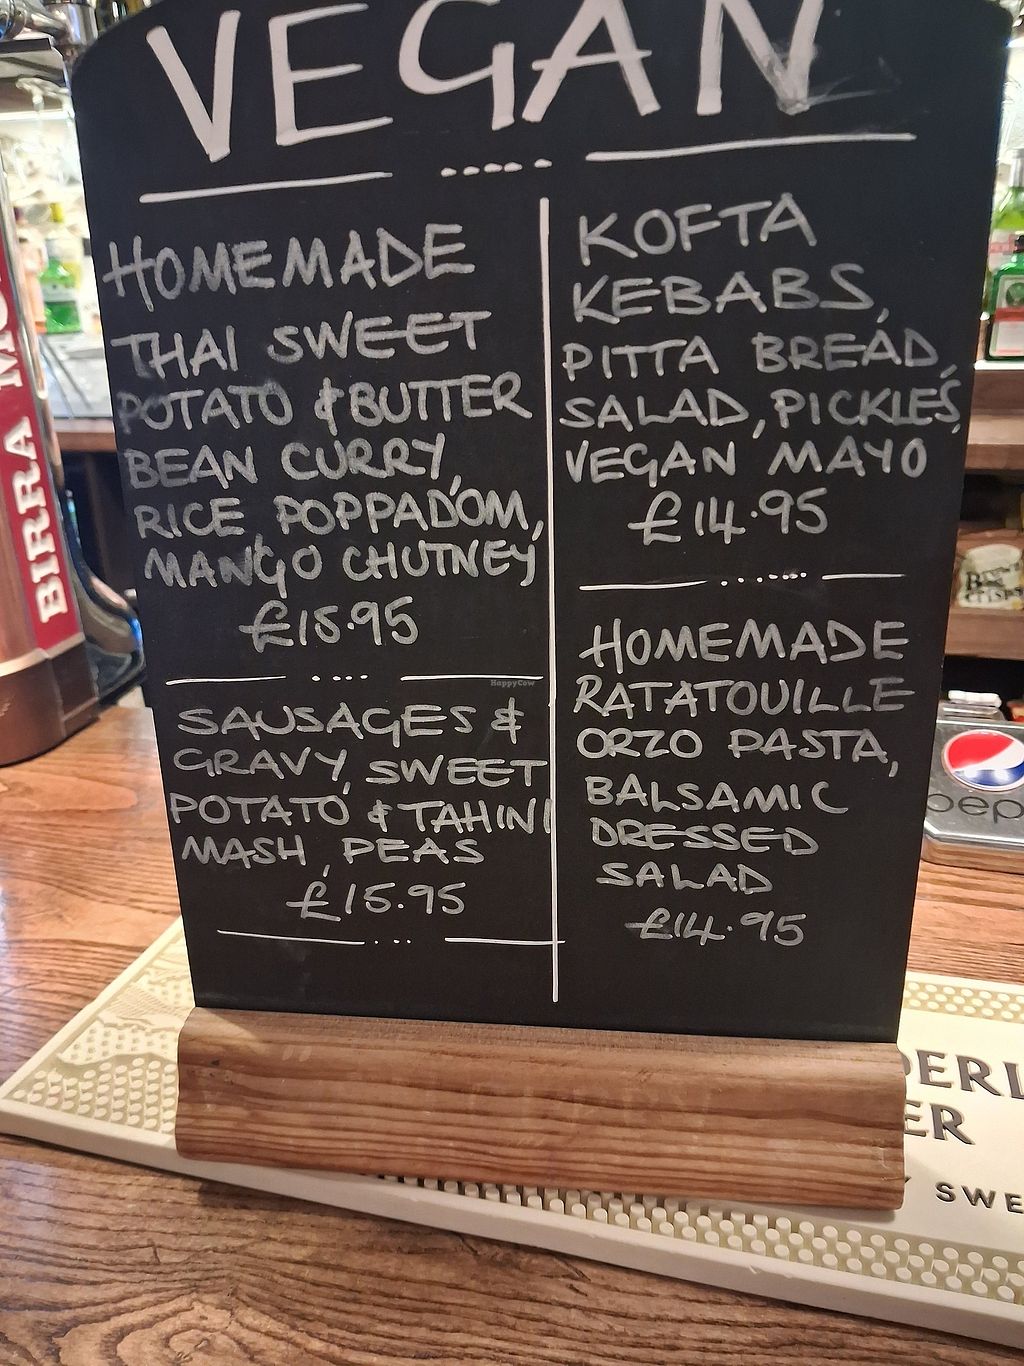 VEGAN
HOMEMADE
THAI SWEET
POTATO & BUTTER
BEAN CURRY,
RICE, POPPADOM,
MANGO CHUTNEY
£15.95
SAUSAGES &
GRAVY, SWEET
POTATO & TAHINI
MASH, PEAS
£15.95
KOFTA
KEBABS,
PITTA BREAD,
SALAD, PICKLES,
VEGAN MAYO
£14.95
HOMEMADE
RATATOUILLE
ORZO PASTA,
BALSAMIC
DRESSED
SALAD
£14.95
HappyCow
BIRRA MO
pep
DERL
ER
SWE